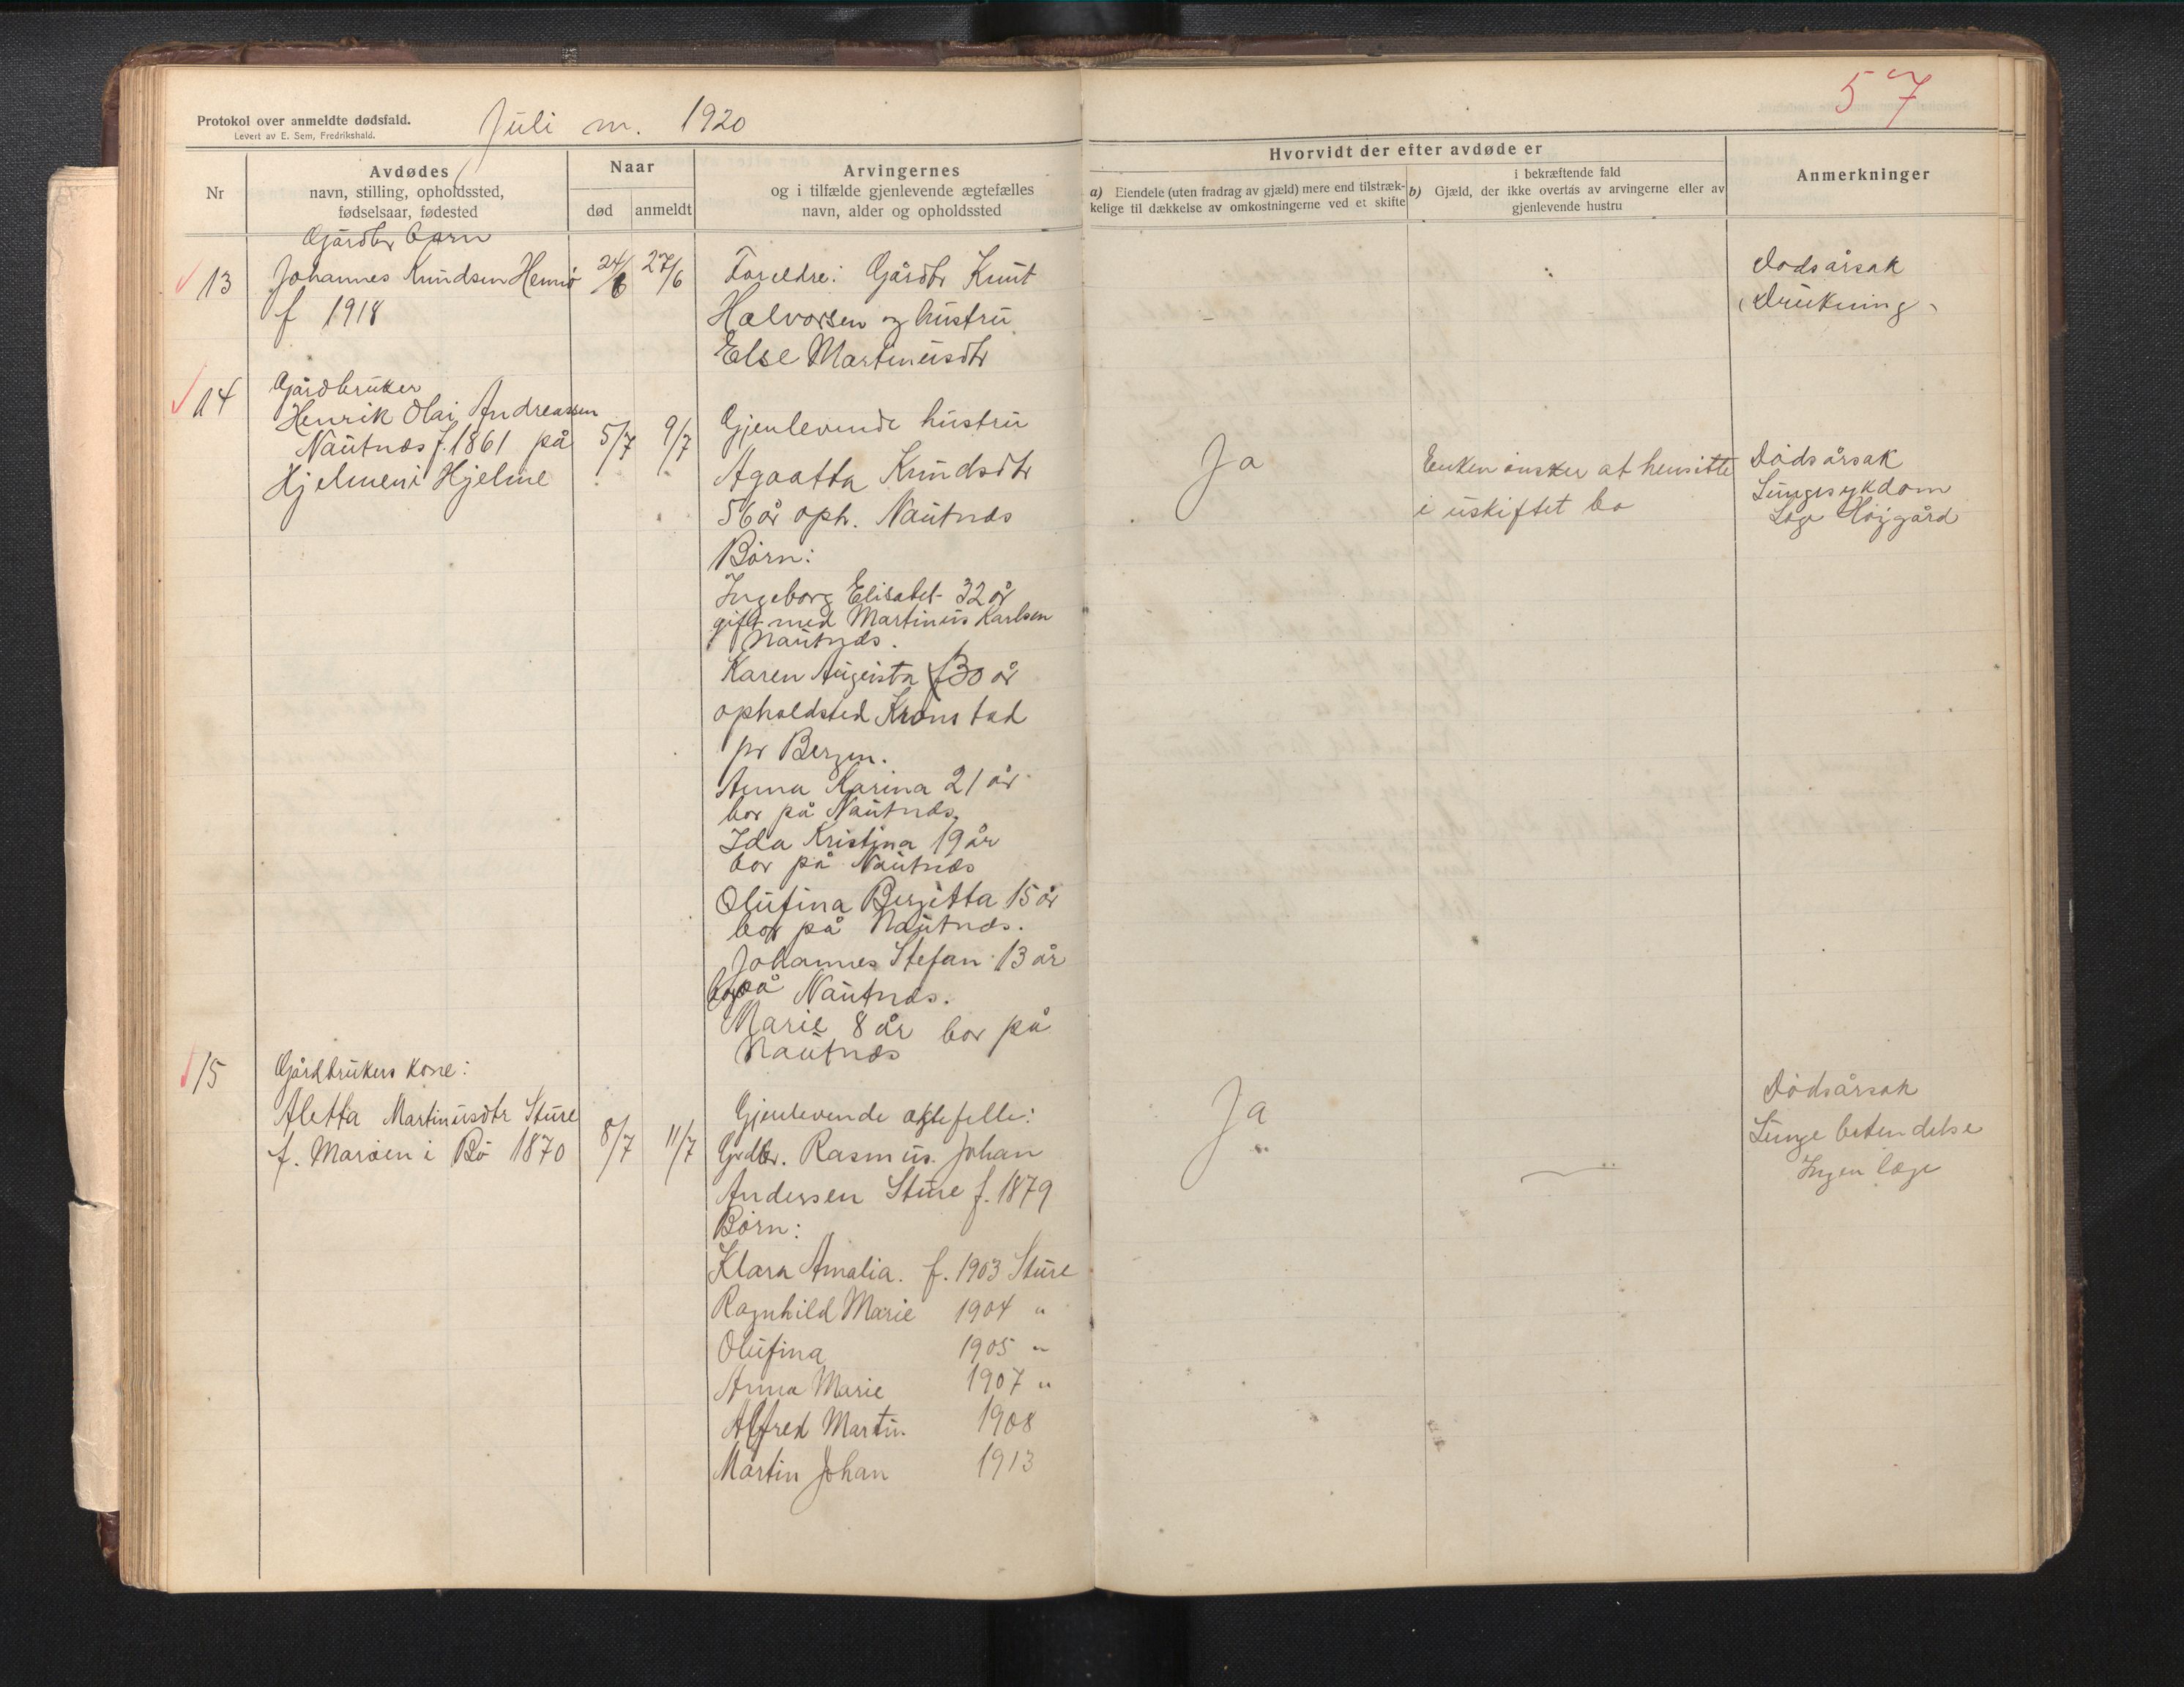 57
Protokol over anmeldte dødsfald.
Levert av E. Sem, Fredrikshald.
Juli m. 1920
Nr
Avdødes
navn, stilling, opholdssted,
fødselsaar, fødested
Naar
død
anmeldt
Arvingernes
og i tilfælde gjenlevende ægtefælles
navn, alder og opholdssted
Hvorvidt der efter avdøde er
a) Eiendele (uten fradrag av gjæld) mere end tilstræk-
kelige til dækkelse av omkostningerne ved et skifte
i bekræftende fald
b) Gjæld, der ikke overtas av arvingerne eller av
gjenlevende hustru
Anmerkninger
13
Gårdbr barn
Johannes Knudsen Hernø
f 1918
24/6
27/6
Foreldre: Gårdbr Knut
Halvorsen og hustru
Else Martinusdtr
-
Dødsårsak
(Drukning)
14
Gårdbruker
Henrik Olai Andreassen
Nautnæs f. 1861 på
Hjelmen i Hjelme
5/7
9/7
Gjenlevende hustru
Agaatta Knudsdtr
56 år oph. Nautnæs
Børn:
Ingeborg Elisabet 32 år
gift med Martinus Karlsen
Nautnæs.
Karen Augusta 30 år
opholdsted Kronstad
pr Bergen.
Anna Karina 21 år
bor på Nautnæs.
Ida Kristina 19 år
bor på Nautnæs
Olufina Bergitta 15 år
bor på Nautnæs.
Johannes Stefan 13 år
bor på Nautnæs.
Marie 8 år bor på
Nautnæs
Ja
Enken ønsker at hensitte
i uskiftet bo
Dødsårsak
Lungesykdom
Læge Højgård
15
Gårdbrukers kone:
Aletta Martinusdtr Sture
f. Marøen i Bø 1870
8/7
11/7
Gjenlevende æktefelle:
Grdbr. Rasmus Johan
Andersen Sture f. 1879
Børn:
Klara Amalia. f. 1903 Sture
Ragnhild Marie 1904 "
Olufina 1905 "
Anna Marie 1907 "
Alfred Martin 1908
Martin Johan 1913
Ja
"
"
Dødsårsak
Lunge betendelse
Ingen læge